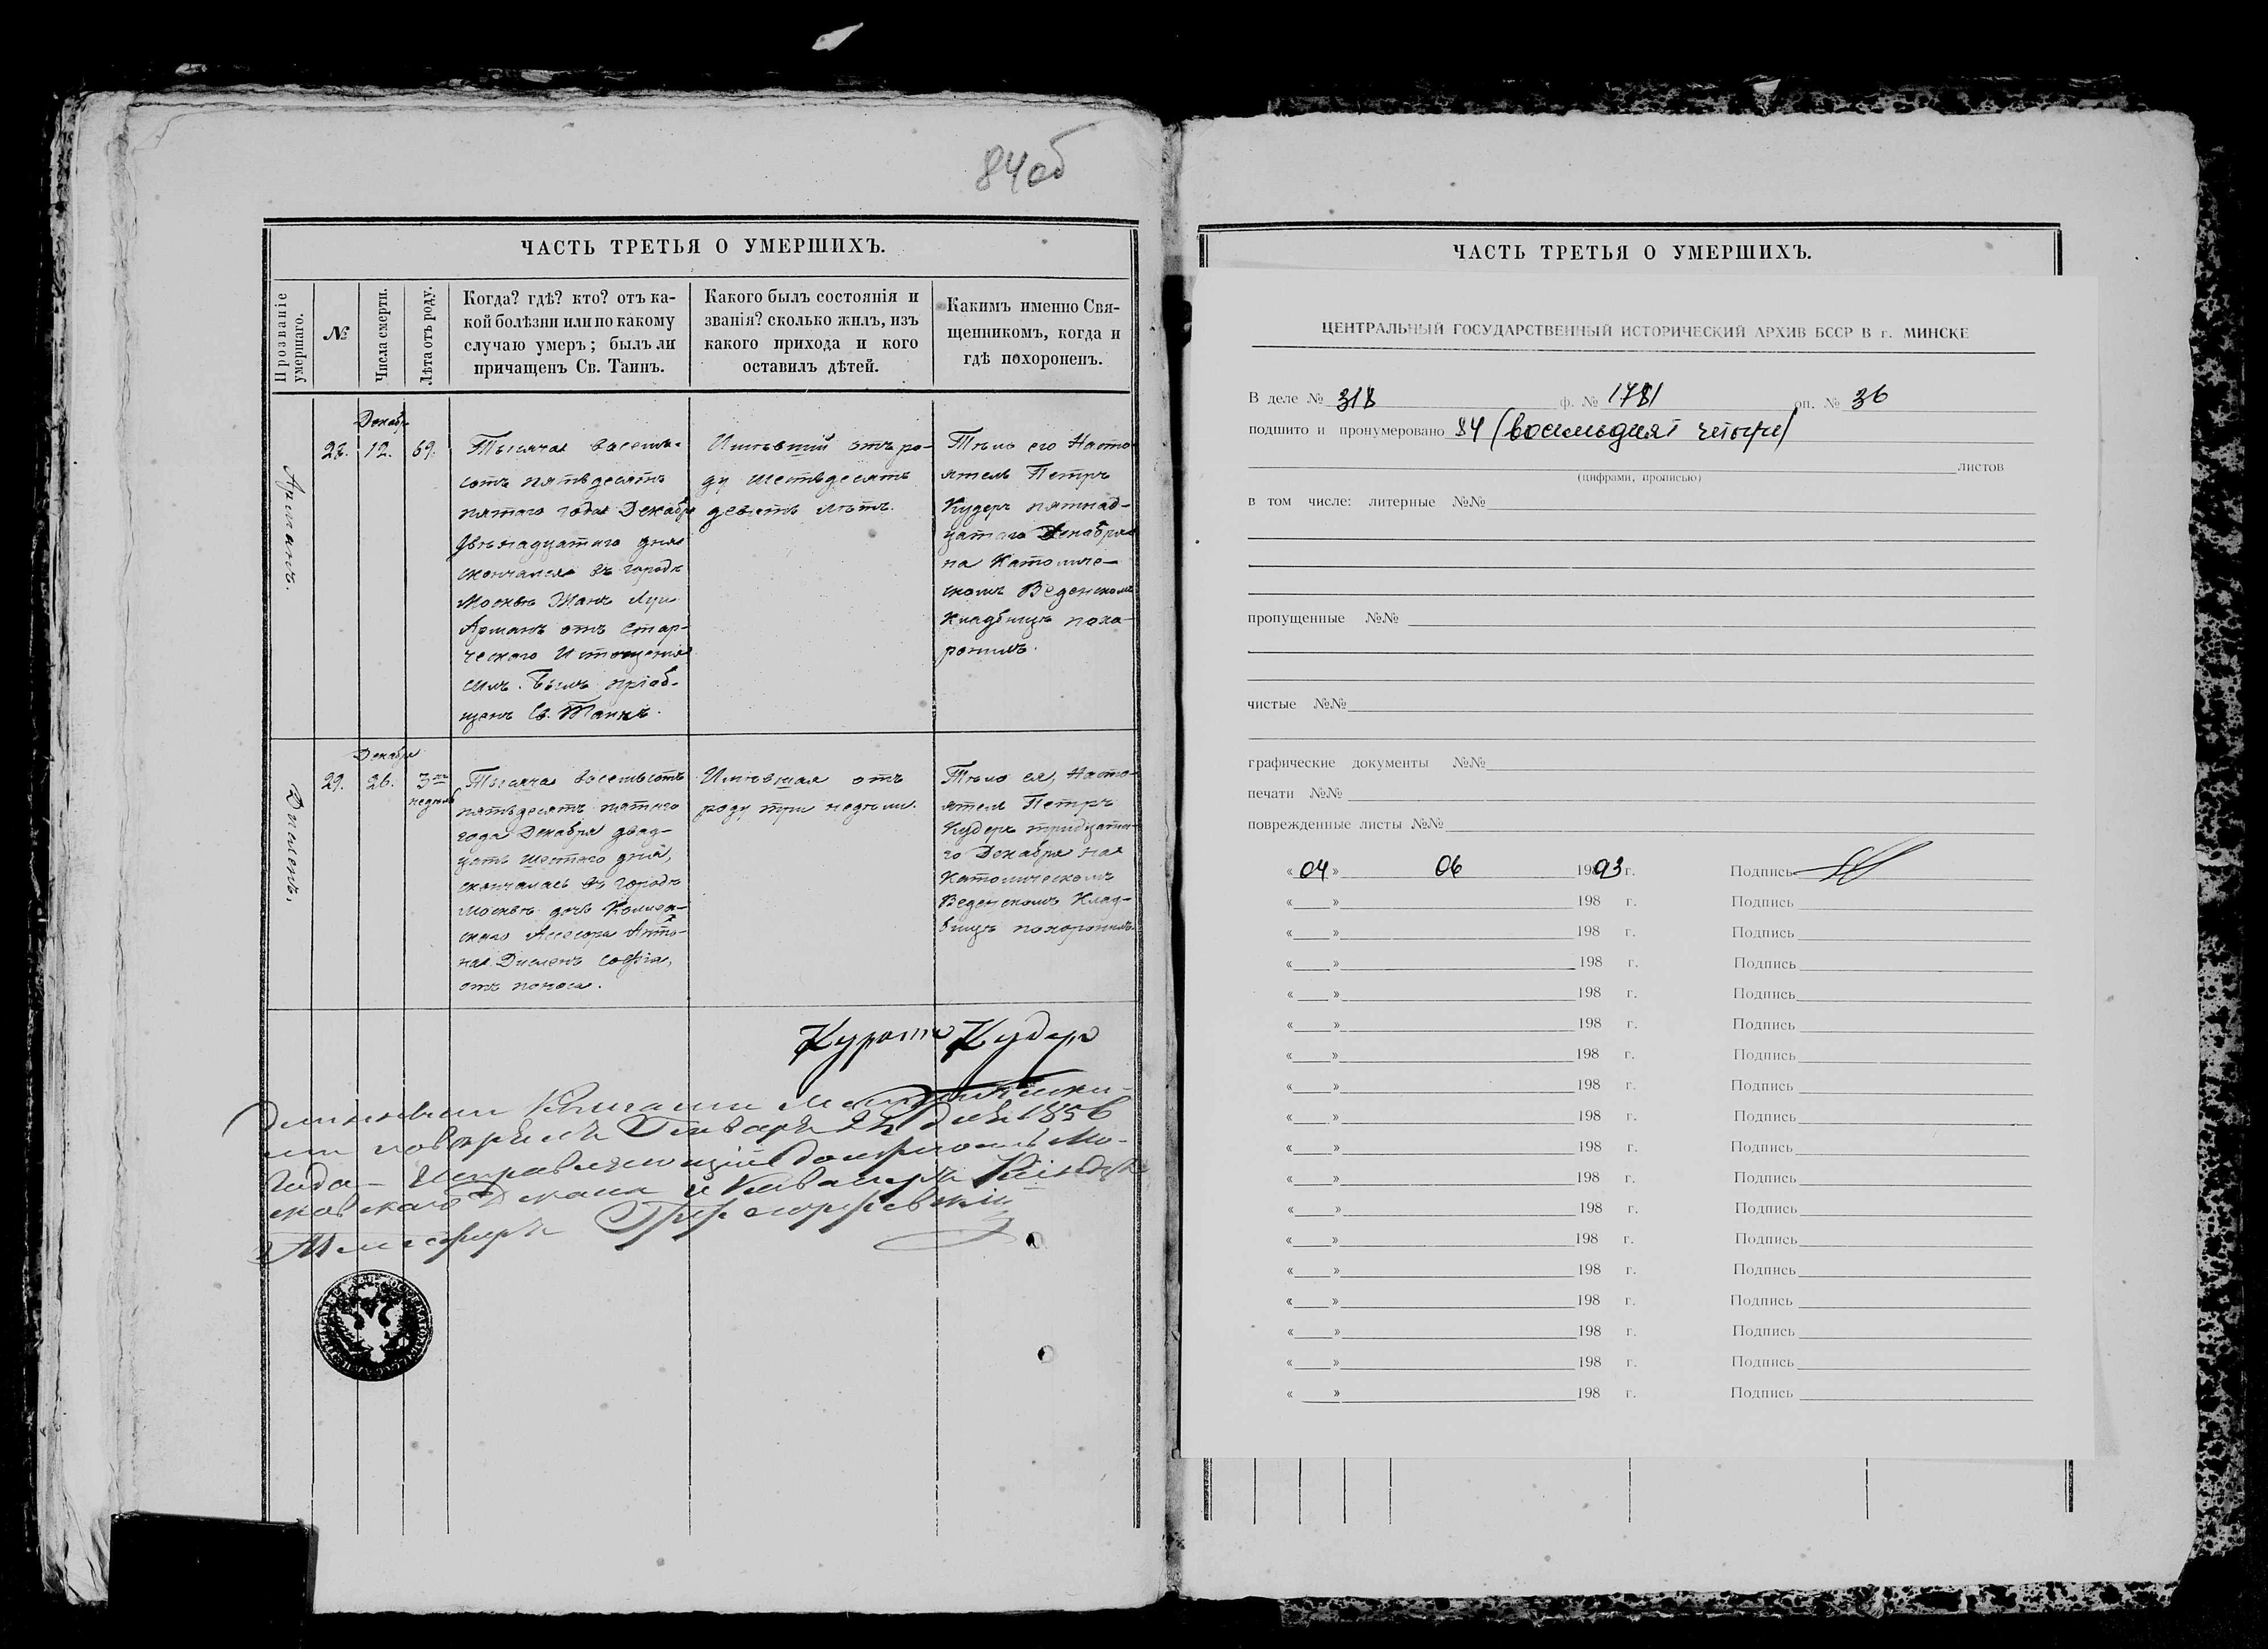 84 об
ЧАСТЬ ТРЕТЬЯ О УМЕРШИХЪ.
Прозваніе умершаго.
№
Числа смерти.
Лѣта отъ роду.
Когда? гдѣ? кто? отъ ка-
кой болѣзни или по какому
случаю умеръ; былъ ли
причащенъ Св. Таинъ.
Какого былъ состоянія и
званія? сколько жилъ, изъ
какого прихода и кого
оставилъ дѣтей.
Какимъ именно Свя-
щенникомъ, когда и
гдѣ похороненъ.
Арманъ.
Декабр
12.
69.
Тысяча восемь-
сотъ пятьдесятъ
пятаго года Декабря
двѣнадцатаго дня
скончался въ городѣ
Москвѣ Жанъ Луи
Арманъ отъ стар-
ческаго Истощенія
силъ. Былъ пріоб-
щенъ Св. Таинъ.
Имѣвшій отъ ро-
ду шестьдесятъ
девять лѣтъ.
Тѣло его Насто-
ятель Петръ
Кудеръ пятнад-
цатаго Декабря
на Католиче-
скомъ Веденскомъ
Кладбищѣ похо-
ронилъ.
Декабря
29.
26.
3
недѣль
Тысяча восемьсотъ
пятьдесятъ пятаго
года Декабря двад-
цать шестаго дня,
скончалась въ городѣ
Москвѣ дочь Коллеж-
скаго Ассесора Анто-
на Дисленъ Софія,
отъ поноса.
Имѣвшая отъ
роду три недѣли.
Тѣло ея, Насто-
ятель Петръ
Кудеръ тридцата-
го Декабря на
Католическомъ
Веденскомъ Клад-
бищѣ похоронилъ.
Куратъ Кудеръ
повѣрилъ Генваря дня 1856
Года Исправляющій должность Мо-
сковскаго Декана и Кавалеръ
ЧАСТЬ ТРЕТЬЯ О УМЕРШИХЪ.
ЦЕНТРАЛЬНЫЙ ГОСУДАРСТВЕННЫЙ ИСТОРИЧЕСКИЙ АРХИВ БССР В г. МИНСКЕ
В деле № 318 ф. № 1781 оп. № 36
подшито и пронумеровано 84 (восемьдесят четыре)
листов
(цифрами, прописью)
в том числе: литерные №№
пропущенные №№
чистые №№
графические документы №№
печати №№
поврежденные листы №№
« 04 » 06 1993 г. Подпись
« » 198 г. Подпись
« » 198 г. Подпись
« » 198 г. Подпись
« » 198 г. Подпись
« » 198 г. Подпись
« » 198 г. Подпись
« » 198 г. Подпись
« » 198 г. Подпись
« » 198 г. Подпись
« » 198 г. Подпись
« » 198 г. Подпись
« » 198 г. Подпись
« » 198 г. Подпись
« » 198 г. Подпись
« » 198 г. Подпись
« » 198 г. Подпись
« » 198 г. Подпись